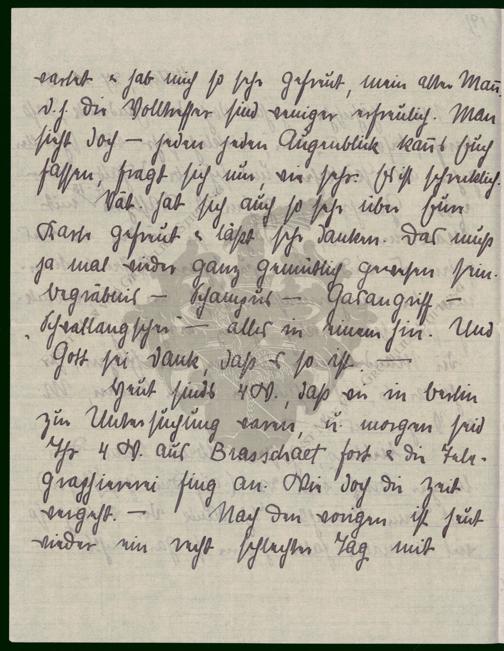 wartet & hab mich so sehr gefreut, mein alter Mañ.
d.h. die Volltreffer sind weniger erfreulich. Man
sieht doch — jeden jeden Augenblick kañs Euch
fassen, fragt sich nur wie sehr. Es ist schrecklich.
Vät. hat sich auch so sehr über Eure
Karte gefreut & läßt sehr danken. Das muß
ja mal wieder ganz gemütlich gewesen sein.
Begräbnis — Schampus — Gasangriff —
— alles in einem hin. Und
Gott sei Dank, daß es so ist. —
Heut sinds 4 W., daß wir in Berlin
zur Untersuchung waren, u. morgen seid
Ihr 4 W. aus Brasschaet fort & die Tele-
graphiererei fing an. Wie doch die Zeit
vergeht. — Nach den vorigen ist heut
wieder ein recht schlechter Tag mit